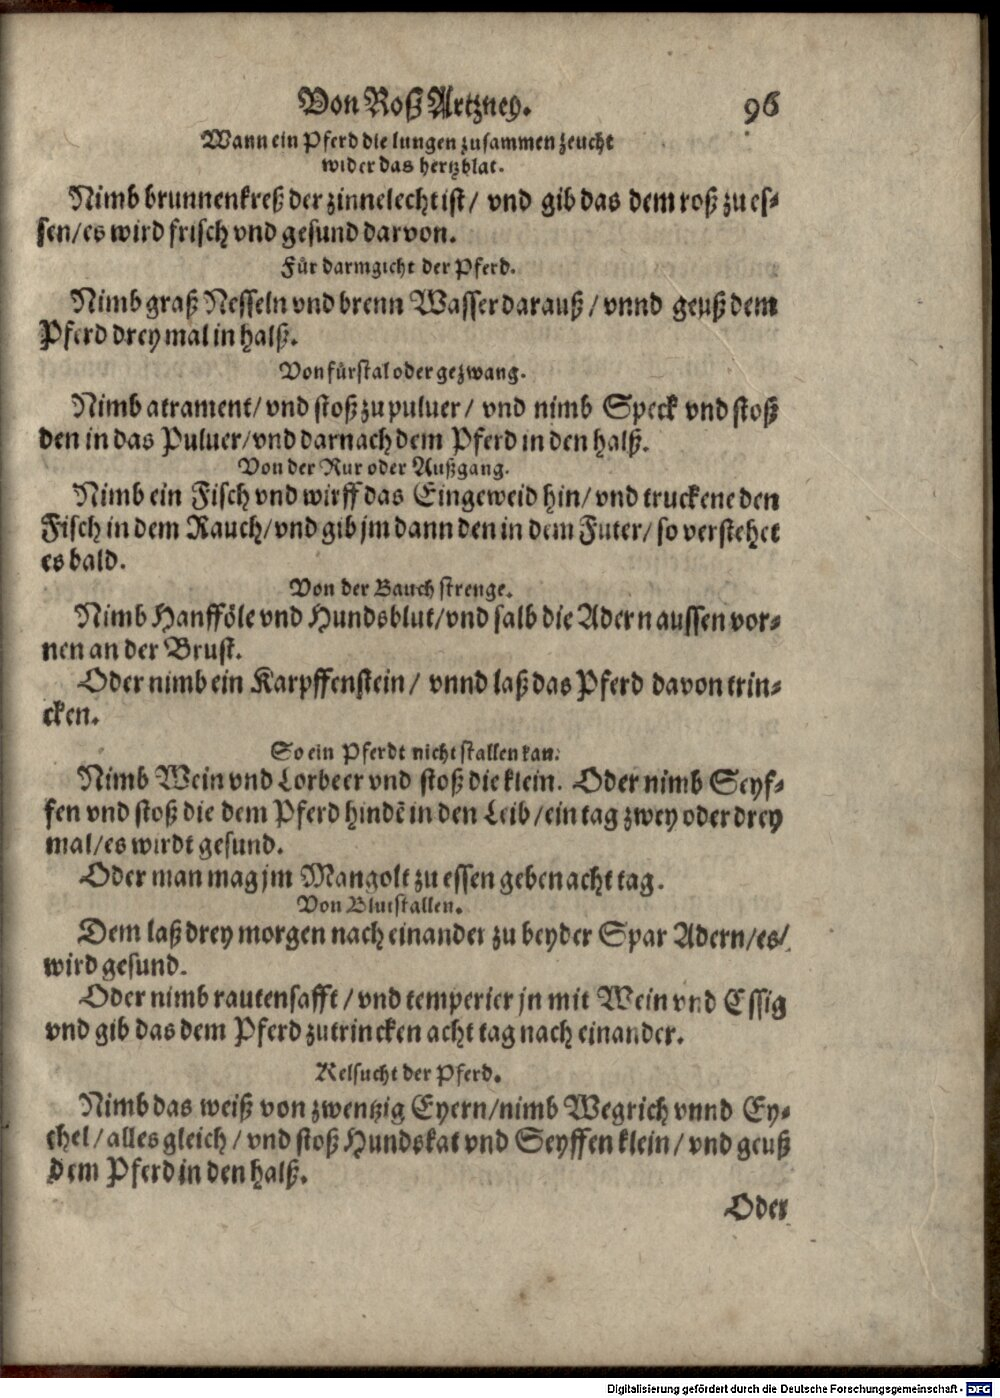 Von Roß Artzney. 96
Wann ein Pferd die lungen zusammen zeucht
wider das hertzblat.
Nimb brunnenkreß der zinnelecht ist/ vnd gib das dem roß zu es-
sen/es wird frisch vnd gesund darvon.
Für darmgicht der Pferd.
Nimb graß Nesseln vnd brenn Wasser darauß/vnnd geuß dem
Pferd drey mal in halß.
Von fürstal oder gezwang.
Nimb atrament/vnd stoß zu puluer/ vnd nimb Speck vnd stoß
den in das Puluer/vnd darnach dem Pferd in den halß.
Von der Rur oder Außgang.
Nimb ein Fisch vnd wirff das Eingeweid hin/vnd truckene den
Fisch in dem Rauch/vnd gib jm dann den in dem Futer/so verstehet
es bald.
Von der Bauch strenge.
Nimb Hanfföle vnd Hundsblut/vnd salb die Adern aussen vor-
nen an der Brust.
Oder nimb ein Karpffenstein/ vnnd laß das Pferd davon trin-
cken.
So ein Pferdt nicht stallen kan.
Nimb Wein vnd Lorbeer vnd stoß die klein. Oder nimb Seyf-
fen vnd stoß die dem Pferd hindẽ in den Leib/ein tag zwey oder drey
mal/es wirdt gesund.
Oder man mag jm Mangolt zu essen geben acht tag.
Von Blutstallen.
Dem laß drey morgen nach einander zu beyder Spar Adern/es/
wird gesund.
Oder nimb rautensafft/vnd temperier jn mit Wein vnd Essig
vnd gib das dem Pferd zutrincken acht tag nach einander.
Kelsucht der Pferd.
Nimb das weiß von zwentzig Eyern/nimb Wegrich vnnd Ey-
chel/alles gleich/vnd stoß Hundskat vnd Seyffen klein/vnd geuß
dem Pferd in den halß.
Oder
Digitalisierung gefördert durch die Deutsche Forschungsgemeinschaft - DFG